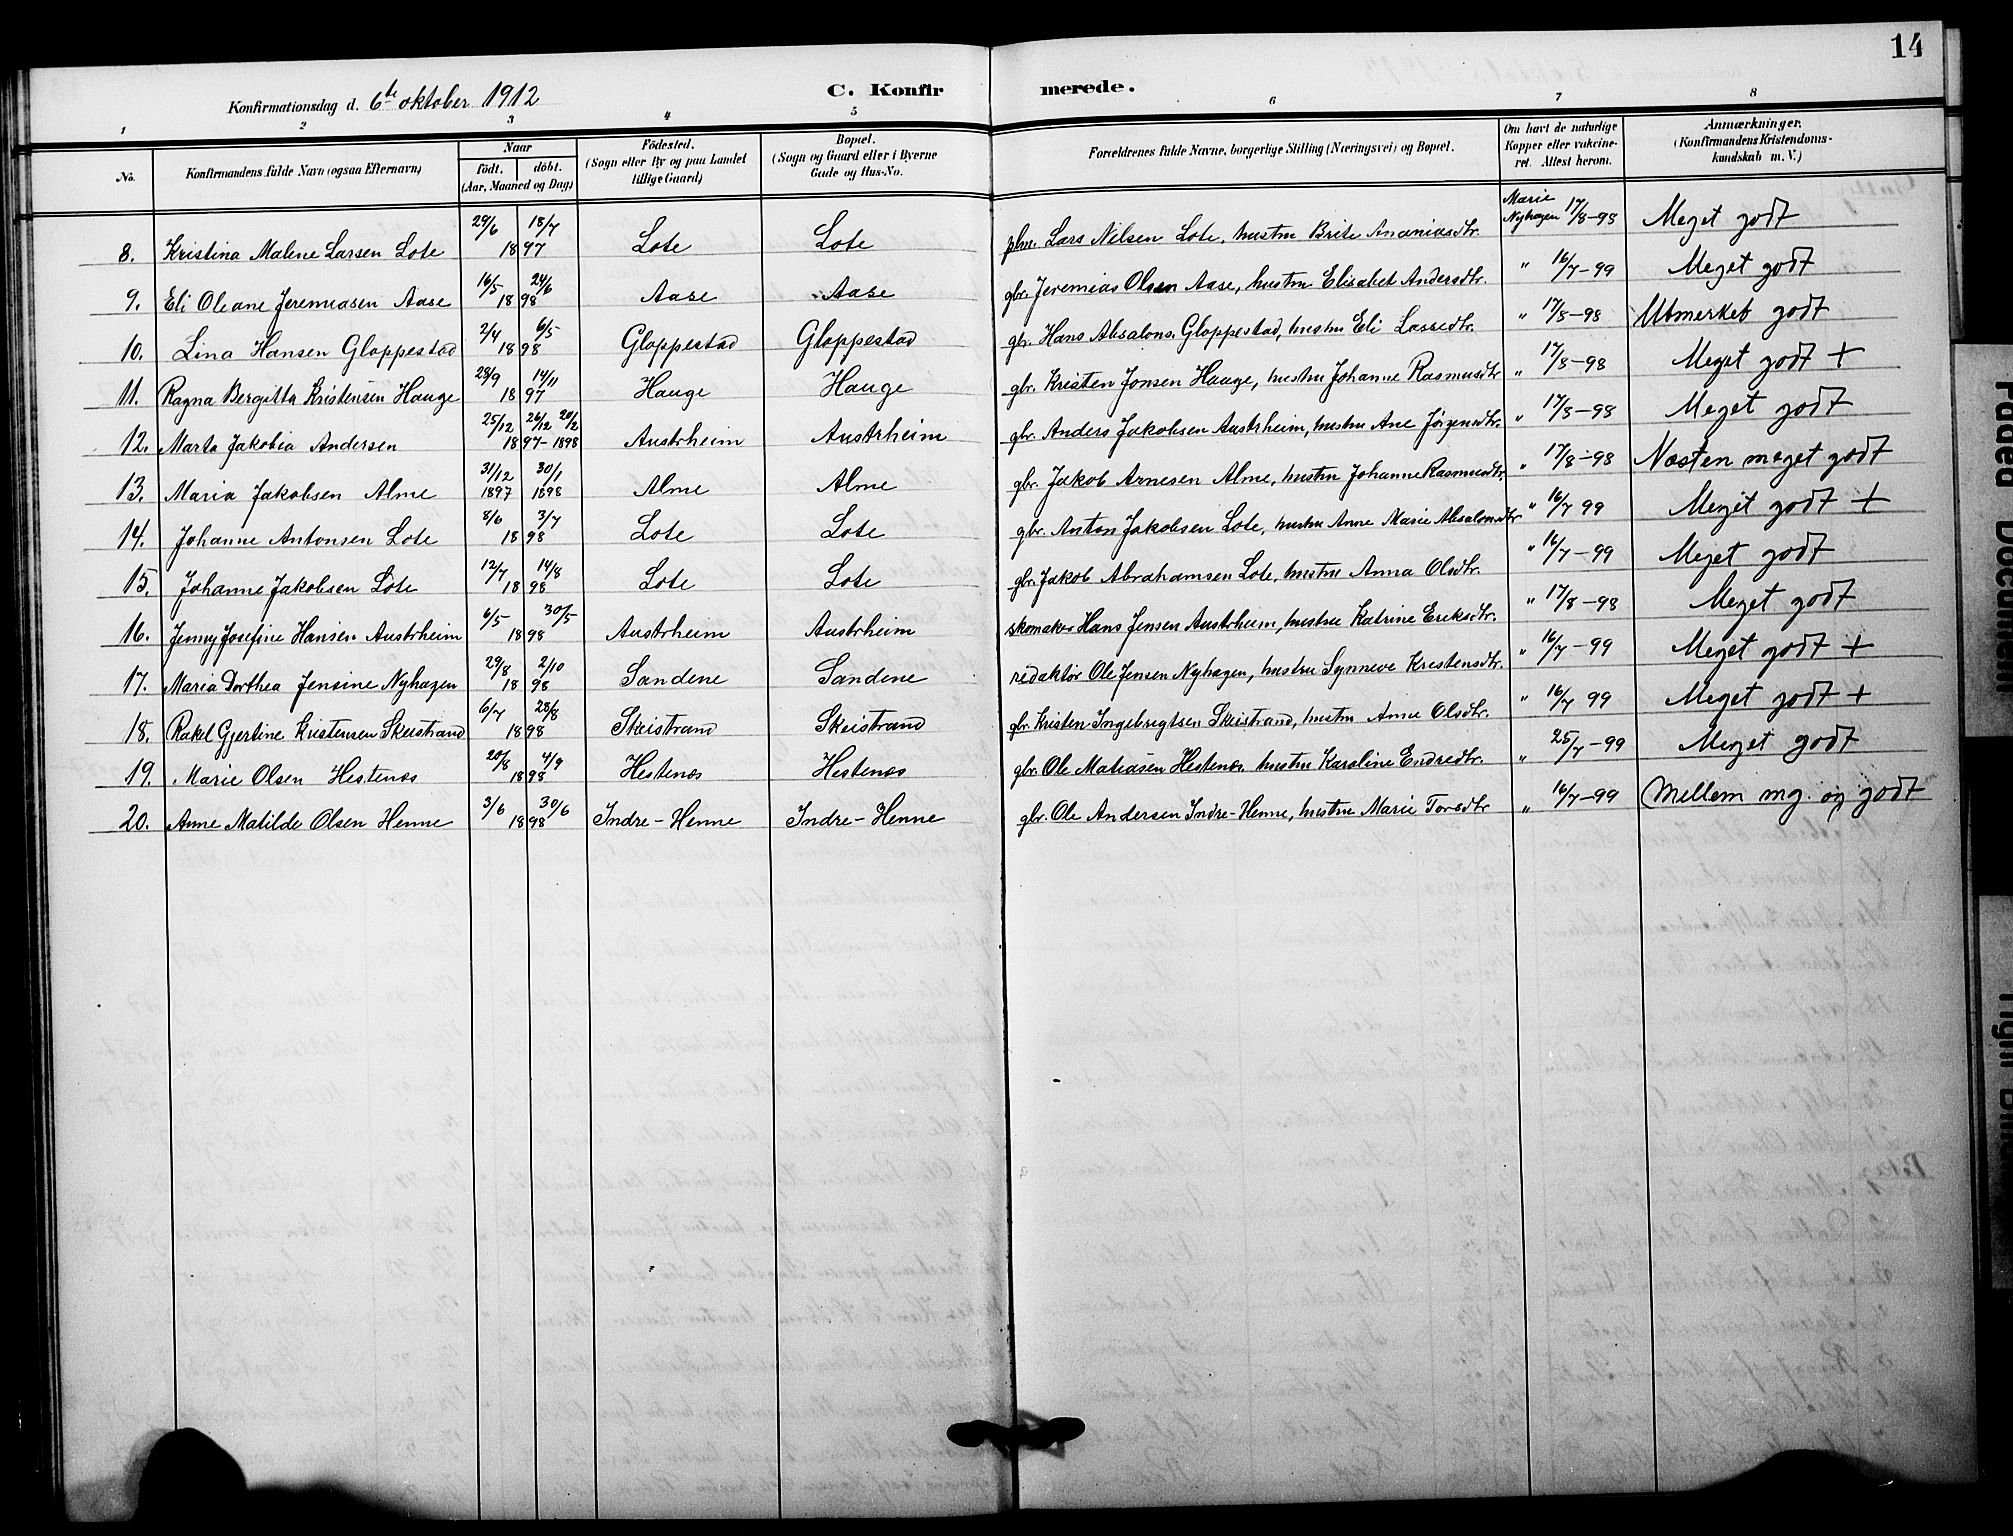 14
Konfirmationsdag d. 6te oktober 1912 C. Konfirmerede.
1 2 3 4 5 6 7 8
No. Konfirmandens fulde Navn (ogsaa Efternavn) Naar født. døbt. (Aar, Maaned og Dag) Fødested. (Sogn eller By og paa Landet tillige Gaard) Bopæl. (Sogn og Gaard eller i Byerne Gade og Hus-No. Forældrenes fulde Navne, borgerlige Stilling (Næringsvei) og Bopæl. Om havt de naturlige Kopper eller vakcineret. Attest herom. Anmærkninger. (Konfirmandens Kristendomskundskab m. V.)
8. Kristina Malene Larsen Lote 29/6 18/7 1897 Lote Lote plm. Lars Nilsen Lote, hustru Brite Ananiasdtr. Marie Nyhagen 17/8-98 Meget godt
9. Eli Oleane Jeremiasen Aase 16/5 24/6 1898 Aase Aase gbr. Jeremias Olsen Aase, hustru Elisabet Andersdtr. " 16/7-99 Meget godt
10. Lina Hansen Gloppestad 2/4 6/5 1898 Gloppestad Gloppestad gbr. Hans Absalons. Gloppestad, hustru Eli Lassedtr. " 17/8-98 Utmerket godt
11. Ragna Bergitta Kristensen Hauge 28/9 14/11 1897 Hauge Hauge gbr. Kristen Jonsen Hauge, hustru Johanne Rasmusdtr " 17/8-98 Meget godt +
12. Marta Jakobia Andersen 25/12 26/12 20/2 1897-1898 Austrheim Austrheim gbr. Anders Jakobsen Austrheim, hustru Ane Jørgensdtr. " 17/8-98 Meget godt
13. Maria Jakobsen Alme 31/12 1897 30/1 1898 Alme Alme gbr. Jakob Arnesen Alme, hustru Johanne Rasmusdtr. " 17/8-98 Næsten meget godt
14. Johanne Antonsen Lote 8/6 3/7 1898 Lote Lote gbr. Anton Jakobsen Lote, hustru Anne Marie Absalonsdtr " 16/7 99 Meget godt +
15. Johanne Jakobsen Lote 12/7 14/8 1898 Lote Lote gbr. Jakob Abrahamsen Lote, hustru Anna Olsdtr. " 16/7-99 Meget godt
16. Jenny Josefine Hansen Austrheim 6/5 30/5 1898 Austrheim Austrheim skomaker Hans Jensen Austrheim, hustru Katrine Eriksdtr. " 17/8-98 Meget godt
17. Maria Dorthea Jensine Nyhagen 29/8 2/10 1898 Sandene Sandene redaktør Ole Jensen Nyhagen, hustru Synneve Kristensdtr. " 16/7-99 Meget godt +
18. Rakel Gjertine Kristensen Skeistrand 6/7 28/8 1898 Skeistrand Skeistrand gbr. Kristen Ingebrigtsen Skeistrand, hustru Anne Olsdtr. " 16/7 99 Meget godt +
19. Marie Olsen Hestenes 20/8 4/9 1898 Hestenes Hestenes gbr. Ole Matiasen Hestenes. hustru Karoline Endredtr. " 25/7-99 Meget godt
20. Anne Matilde Olsen Henne 3/6 30/6 1898 Indre-Henne Indre-Henne gbr. Ole Andersen Indre-Henne, hustru Marie Toresdtr " 16/7-99 Mellem mg. og godt